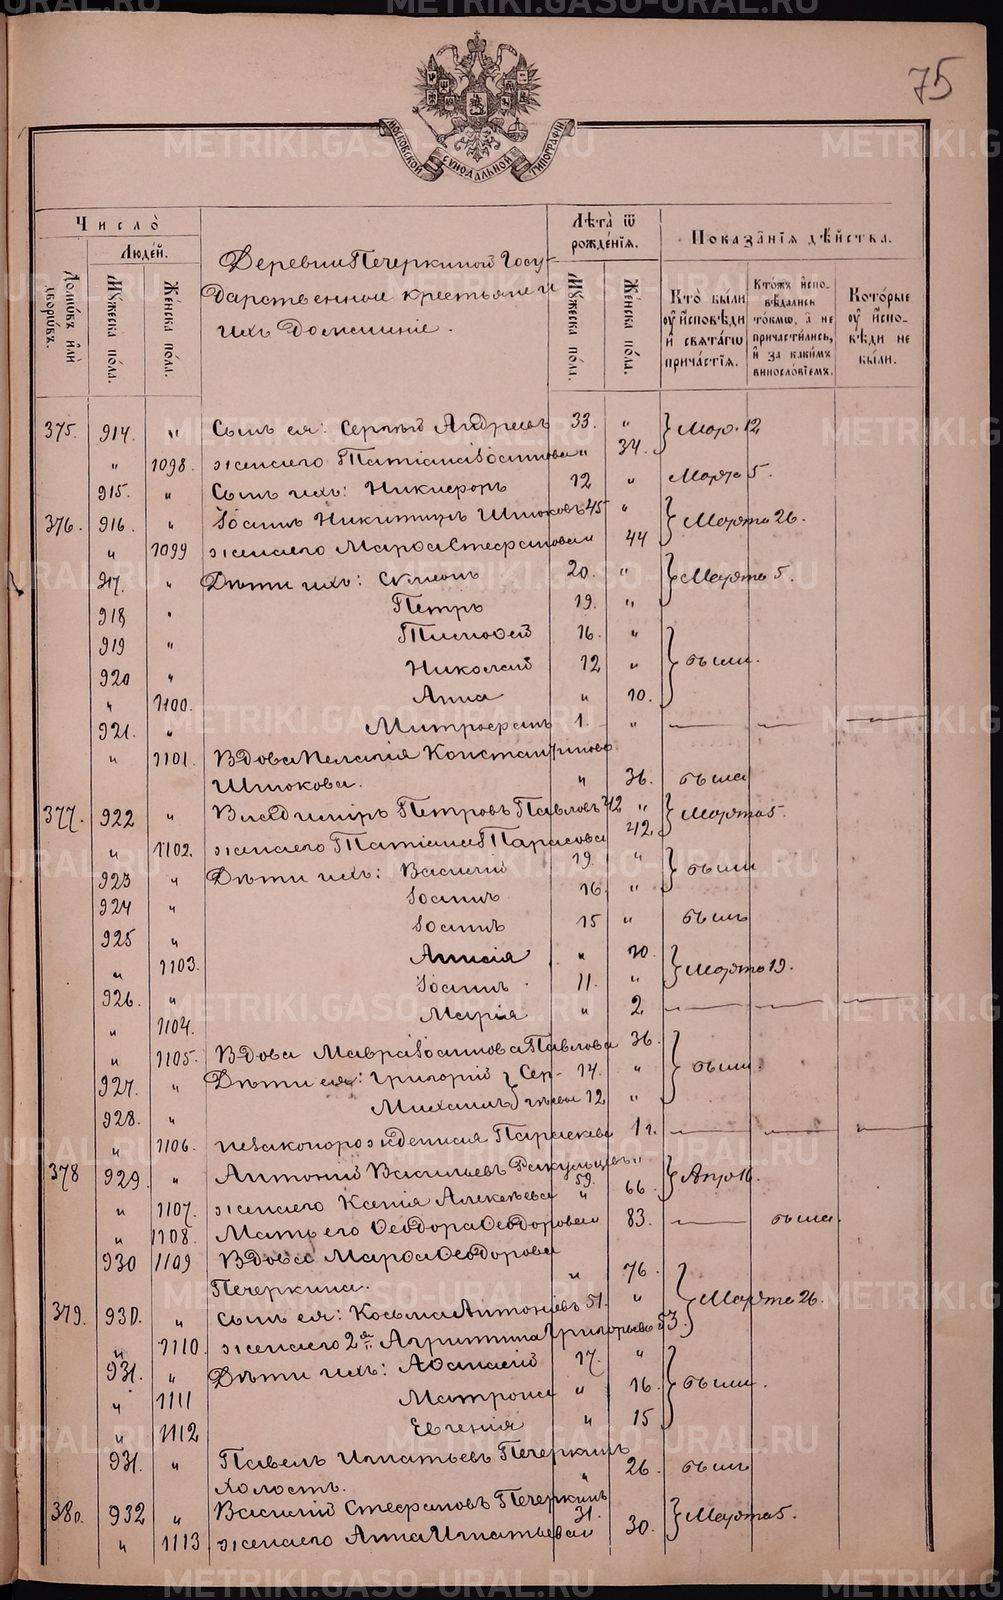 75
МОСКОВСКОЙ СѴНОДАЛЬНОЙ ТИПОГРАФІИ
Число̀
Людей.
Домѡвъ и҆лѝ дворѡвъ.
Мꙋжеска пола.
Же́нска по́ла.
Деревни Печеркиной Госу-
дарственные крестьяне и
ихъ домашніе.
Лѣта̀ ѿ рожде́нїѧ.
Мꙋжеска по́ла.
Же́нска по́ла.
Показа̑нїѧ дѣ́йства.
Кто̀ бы́ли ᲂу҆ и҆сповѣди и҆ свѧта́гѡ прича́стїѧ.
Кто́жъ и҆спо-вѣ́дались то́кмѡ, а҆ не причасти́лись, и҆ за каки́мъ виносло́вїемъ.
Кото́рые ᲂу҆ и҆спо-вѣди не бы́ли.
375. 914. " Сынъ ея: Сергий Андреевъ 33. " Мар. 12
" 1098. жена его Татіана Іоаннова " 34.
915. " Сынъ ихъ: Никифоръ 12 " Марта 5.
376. 916. " Іоаннъ Никитинъ Шлюковъ 45 " Марта 26.
" 1099 жена его Марѳа Стефанова " 44
917. " Дѣти ихъ: Симеонъ 20. " Марта 5.
918 " Петръ 19. "
919 " Тимоѳей 16. "
920 " Николай 12 " были.
" 1100. Анна " 10.
921. " Митрофанъ 1. " — — —
" 1101. Вдова Пелагія Константинова
Шлюкова. " 36. была
377. 922 " Владиміръ Петровъ Павловъ 42 " Марта 5.
" 1102. жена его Татіана Тарасова 42.
923 " Дѣти ихъ: Василій 19. " были
924 " Іоаннъ 16. "
925 " Іоаннъ 15 " былъ
" 1103. Анисія " 10. Марта 19.
926. " Іоаннъ 11. "
" 1104. Марія " 2. — — —
" 1105. Вдова Мавра Іоаннова Павлова 36.
927. " Дѣти ея: Григорій } Сер- 14. " были.
928. " Михаилъ } гѣевы 12 "
" 1106. незаконорожденная Параскева 1 г. — — —
378 929. " Антоній Васильевъ 59. " Апр. 16.
" 1107. жена его Ксенія Алексѣева " 66.
" 1108. Мать его Ѳеодора Ѳеодорова " 83. — была.
930 1109 Вдова Марѳа Ѳеодорова
Печеркина. " 76.
379. 930. " Сынъ ея: Косьма Антоніевъ 51. " Марта 26.
" 1110. жена его 2я Агриппина Григорьева 53.
931. " Дѣти ихъ: Аѳанасій 17. "
" 1111 Матрона " 16. были.
" 1112 Евгенія " 15
931. " Павелъ Игнатьевъ Печеркинъ
холостъ. " 26. былъ
380. 932 " Василій Стефановъ Печеркинъ 31. " Марта 5.
" 1113 жена его Анна Игнатьева 30.